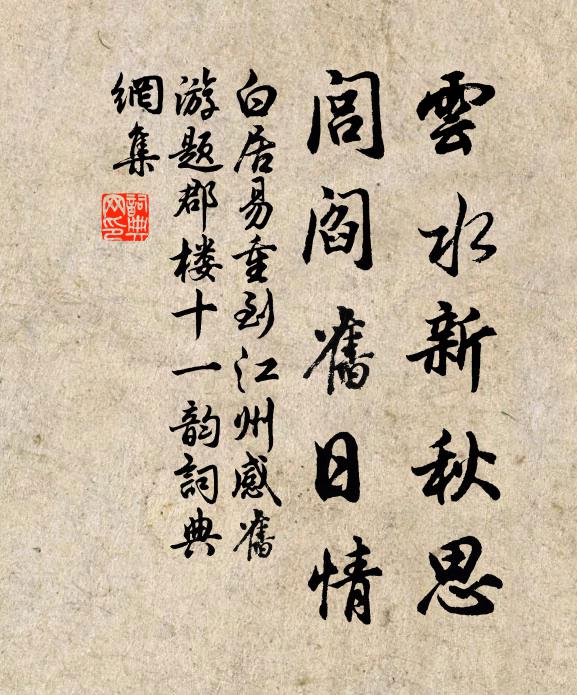 雲水新秋思
閭閻舊日情
白居易重到江州感舊
游题郡楼十一韵詞典
網集
詞典
网印